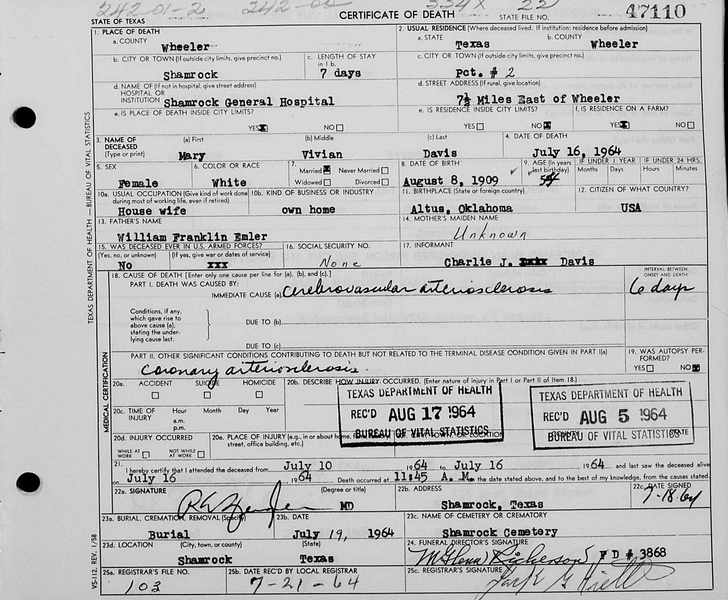 242 01-2 242-02 334X 22
CERTIFICATE OF DEATH
STATE OF TEXAS STATE FILE NO. 47110
1. PLACE OF DEATH 2. USUAL RESIDENCE (Where deceased lived. If institution: residence before admission)
a. COUNTY a. STATE b. COUNTY
Wheeler Texas Wheeler
b. CITY OR TOWN (If outside city limits, give precinct no.) c. LENGTH OF STAY in 1 b. c. CITY OR TOWN (If outside city limits, give precinct no.)
Shamrock 7 days Pct. # 2
d. NAME OF (If not in hospital, give street address) HOSPITAL OR INSTITUTION d. STREET ADDRESS (If rural, give location)
Shamrock General Hospital 7½ Miles East of Wheeler
e. IS PLACE OF DEATH INSIDE CITY LIMITS? e. IS RESIDENCE INSIDE CITY LIMITS? f. IS RESIDENCE ON A FARM?
YES NO YES NO YES NO
3. NAME OF DECEASED (Type or print) (a) First (b) Middle (c) Last 4. DATE OF DEATH
Mary Vivian Davis July 16, 1964
5. SEX 6. COLOR OR RACE 7. Married Never Married Widowed Divorced 8. DATE OF BIRTH 9. AGE (In years last birthday) IF UNDER 1 YEAR IF UNDER 24 HRS.
Months Days Hours Minutes
Female White August 8, 1909
10a. USUAL OCCUPATION (Give kind of work done during most of working life, even if retired) 10b. KIND OF BUSINESS OR INDUSTRY 11. BIRTHPLACE (State or foreign country) 12. CITIZEN OF WHAT COUNTRY?
House wife own home Altus, Oklahoma USA
13. FATHER'S NAME 14. MOTHER'S MAIDEN NAME
William Franklin Emler Unknown
15. WAS DECEASED EVER IN U.S. ARMED FORCES? 16. SOCIAL SECURITY NO. 17. INFORMANT
(Yes, no, or unknown) (If yes, give war or dates of service)
No xxx None Charlie J. Davis
18. CAUSE OF DEATH [Enter only one cause per line for (a), (b), and (c).] INTERVAL BETWEEN ONSET AND DEATH
PART I. DEATH WAS CAUSED BY:
IMMEDIATE CAUSE (a) Cerebrovascular arteriosclerosis 6 days
Conditions, if any, which gave rise to above cause (a), stating the underlying cause last.
DUE TO (b)
DUE TO (c)
PART II. OTHER SIGNIFICANT CONDITIONS CONTRIBUTING TO DEATH BUT NOT RELATED TO THE TERMINAL DISEASE CONDITION GIVEN IN PART I(a) 19. WAS AUTOPSY PERFORMED?
Coronary arteriosclerosis YES NO
20a. ACCIDENT SUICIDE HOMICIDE 20b. DESCRIBE HOW INJURY OCCURRED. (Enter nature of injury in Part I or Part II of Item 18.)
TEXAS DEPARTMENT OF HEALTH
REC'D AUG 17 1964
BUREAU OF VITAL STATISTICS
TEXAS DEPARTMENT OF HEALTH
REC'D AUG 5 1964
BUREAU OF VITAL STATISTICS
20c. TIME OF INJURY Hour Month Day Year
a.m.
p.m.
20d. INJURY OCCURRED 20e. PLACE OF INJURY (e.g., in or about home, farm, street, office building, etc.) LOCATION STATE
WHILE AT WORK NOT WHILE AT WORK
21. I hereby certify that I attended the deceased from July 10 1964 to July 16 1964 and last saw the deceased alive
July 16 1964 Death occurred at 11:45 A. M. the date stated above, and to the best of my knowledge, from the causes stated
22a. SIGNATURE (Degree or title) 22b. ADDRESS 22c. DATE SIGNED
MD Shamrock, Texas 7-18-64
23a. BURIAL, CREMATION, REMOVAL (Specify) 23b. DATE 23c. NAME OF CEMETERY OR CREMATORY
Burial July 19, 1964 Shamrock Cemetery
23d. LOCATION (City, town, or county) (State) 24. FUNERAL DIRECTOR'S SIGNATURE
Shamrock Texas Richerson F D # 3868
25a. REGISTRAR'S FILE NO. 25b. DATE REC'D BY LOCAL REGISTRAR 25c. REGISTRAR'S SIGNATURE
103 7-21-64
TEXAS DEPARTMENT OF HEALTH — BUREAU OF VITAL STATISTICS
MEDICAL CERTIFICATION
VS-112, REV. 1/58